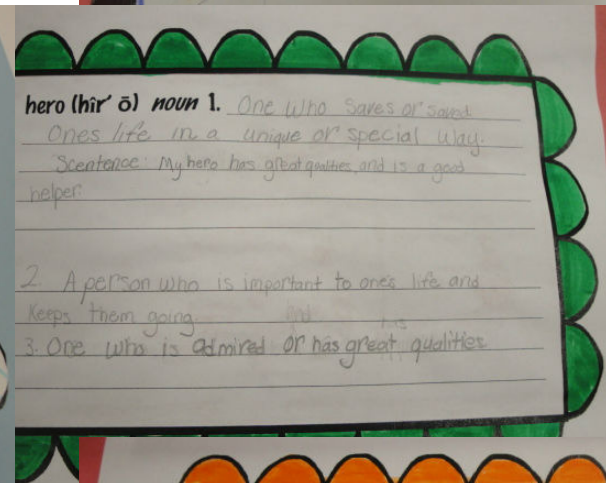 hero (hîr′ ō) noun 1. One who saves or saved
Ones life in a unique or special way.
Scentence: My hero has great qualties, and is a good
helper.
2. A person who is important to one's life and
Keeps them going.
3. One who is admired or has great qualities